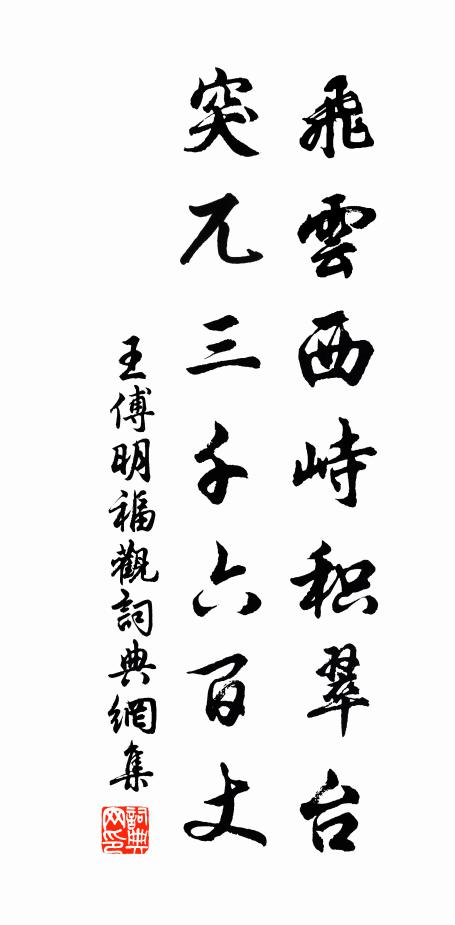 飛雲西峙积翠台
突兀三千六百丈
王傅明福觀詞典網集
詞典网印